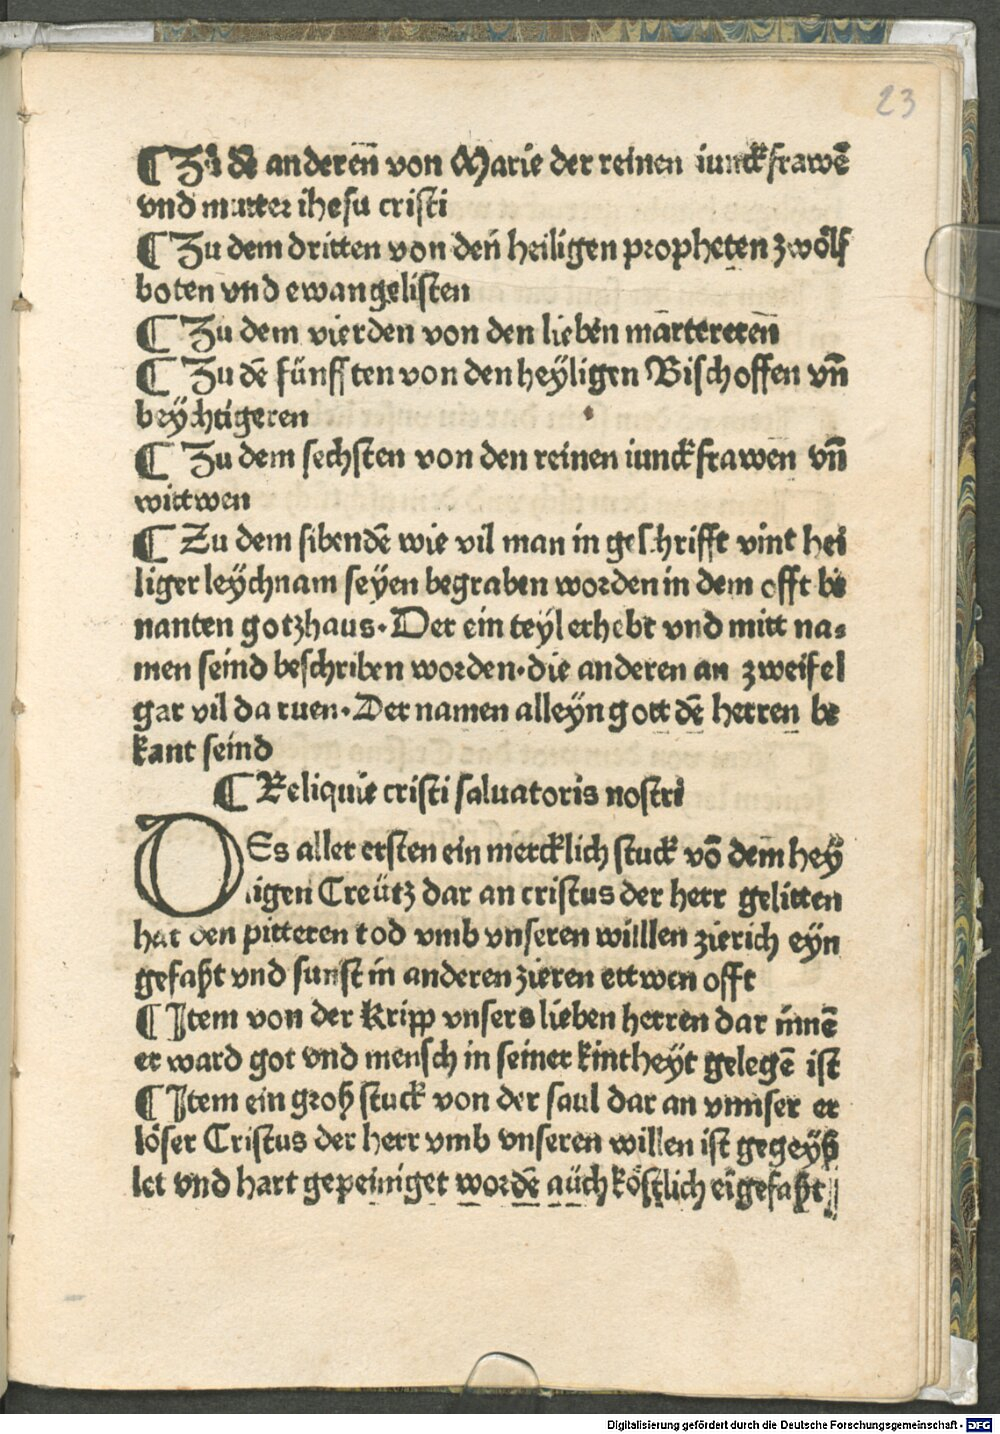 23
¶ Zů dē anderen̄ von Marie der reinen iunckfrawē
vnd mutter ihesu cristi
¶ Zu dem dritten von den heiligen propheten zwölf
boten vnd ewangelisten
¶ Zu dem vierden von den lieben martereren̄
¶ Zu dē fünfften von den heÿligen Bischoffen vn̄
beÿchtigeren
¶ Zu dem sechsten von den reinen iunckfrawen vn̄
wittwen
¶ Zu dem sibendē wie vil man in geschrifft vint hei
liger leÿchnam seÿen begraben worden in dem offt be
nanten gotzhaus. Der ein teÿl erhebt vnd mitt na-
men seind beschriben worden. die anderen an zweifel
gar vil da ruen. Der namen alleÿn gott dē herren be
kant seind
¶ Reliquie cristi saluatoris nostri
DEs aller ersten ein mercklich stuck vō dem heÿ
ligen Creütz dar an cristus der herr gelitten
hat den pitteren tod vmb vnseren willlen zierich eÿn
gefaßt vnd sunst in anderen zieren ettwen offt
¶ Item von der Kripp vnsers lieben herren dar innē
er ward got vnd mensch in seiner kintheÿt gelegē ist
¶ Item ein groß stuck von der saul dar an vnnser er
löser Cristus der herr vmb vnseren willen ist gegeÿß
let vnd hart gepeiniget wordē aüch köstlich eīgefaßt
Digitalisierung gefördert durch die Deutsche Forschungsgemeinschaft - DFG